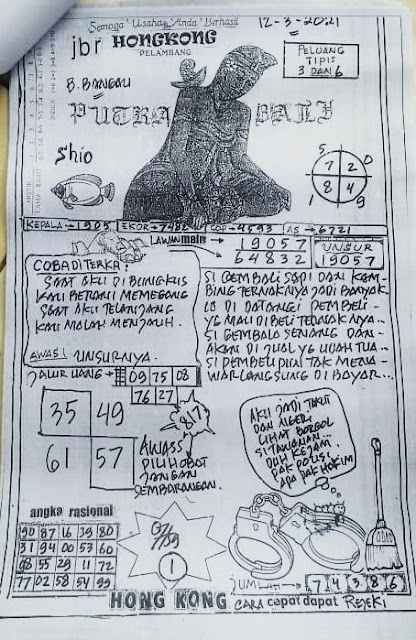 Semoga Usaha Anda Berhasil
12-3-2021
jbr HONGKONG
PELAMBANG
PELUANG
TIPIS
3 DAN 6
B. BANGAU
PUTRA BALI
Shio
5 0
7 2
8 4
1 9
KEPALA → 1905 EKOR → 7482 COP → 4593 AS → 6721
LAWAN main → 19057
64832
UNSUR
19057
COBA DI TERKA:
SAAT AKU DI BUNGKUS
KAU BERANI MEMEGANG
SAAT AKU TELANJANG
KAU MALAH MENJAUH.
AWAS! UNSURNYA.
SI GEMBALA SAPI DAN KAM-
BING TERNAKNYA JADI BANYAK
LO DI DATANGI PEMBELI-
YG MAU DI BELI TERNAKNYA...
SI GEMBALA SENANG DAN-
AKAN DI JUAL YG UDAH TUA...
SI PEMBELI PUN TAK MENA-
WAR LANGSUNG DI BAYAR...
JALUR UANG → 09 75 08
76 27
35 49
61 57
817
AWASS
DILIHOBOT
JANGAN
SEMBARANGAN.
AKU JADI TAKUT
DAN NGERI
LIHAT BORGOL
SI TAWANAN...
DUH KEJAM...
PAK POLISI
APA PAK HAKIM
angka rasional
90 87 16 39 80
31 94 00 53 60
98 55 29 11 72
77 02 58 54 99
1
JUMLAH → 7 4 3 8 6
HONG KONG CARA cepat dapat REJEKI